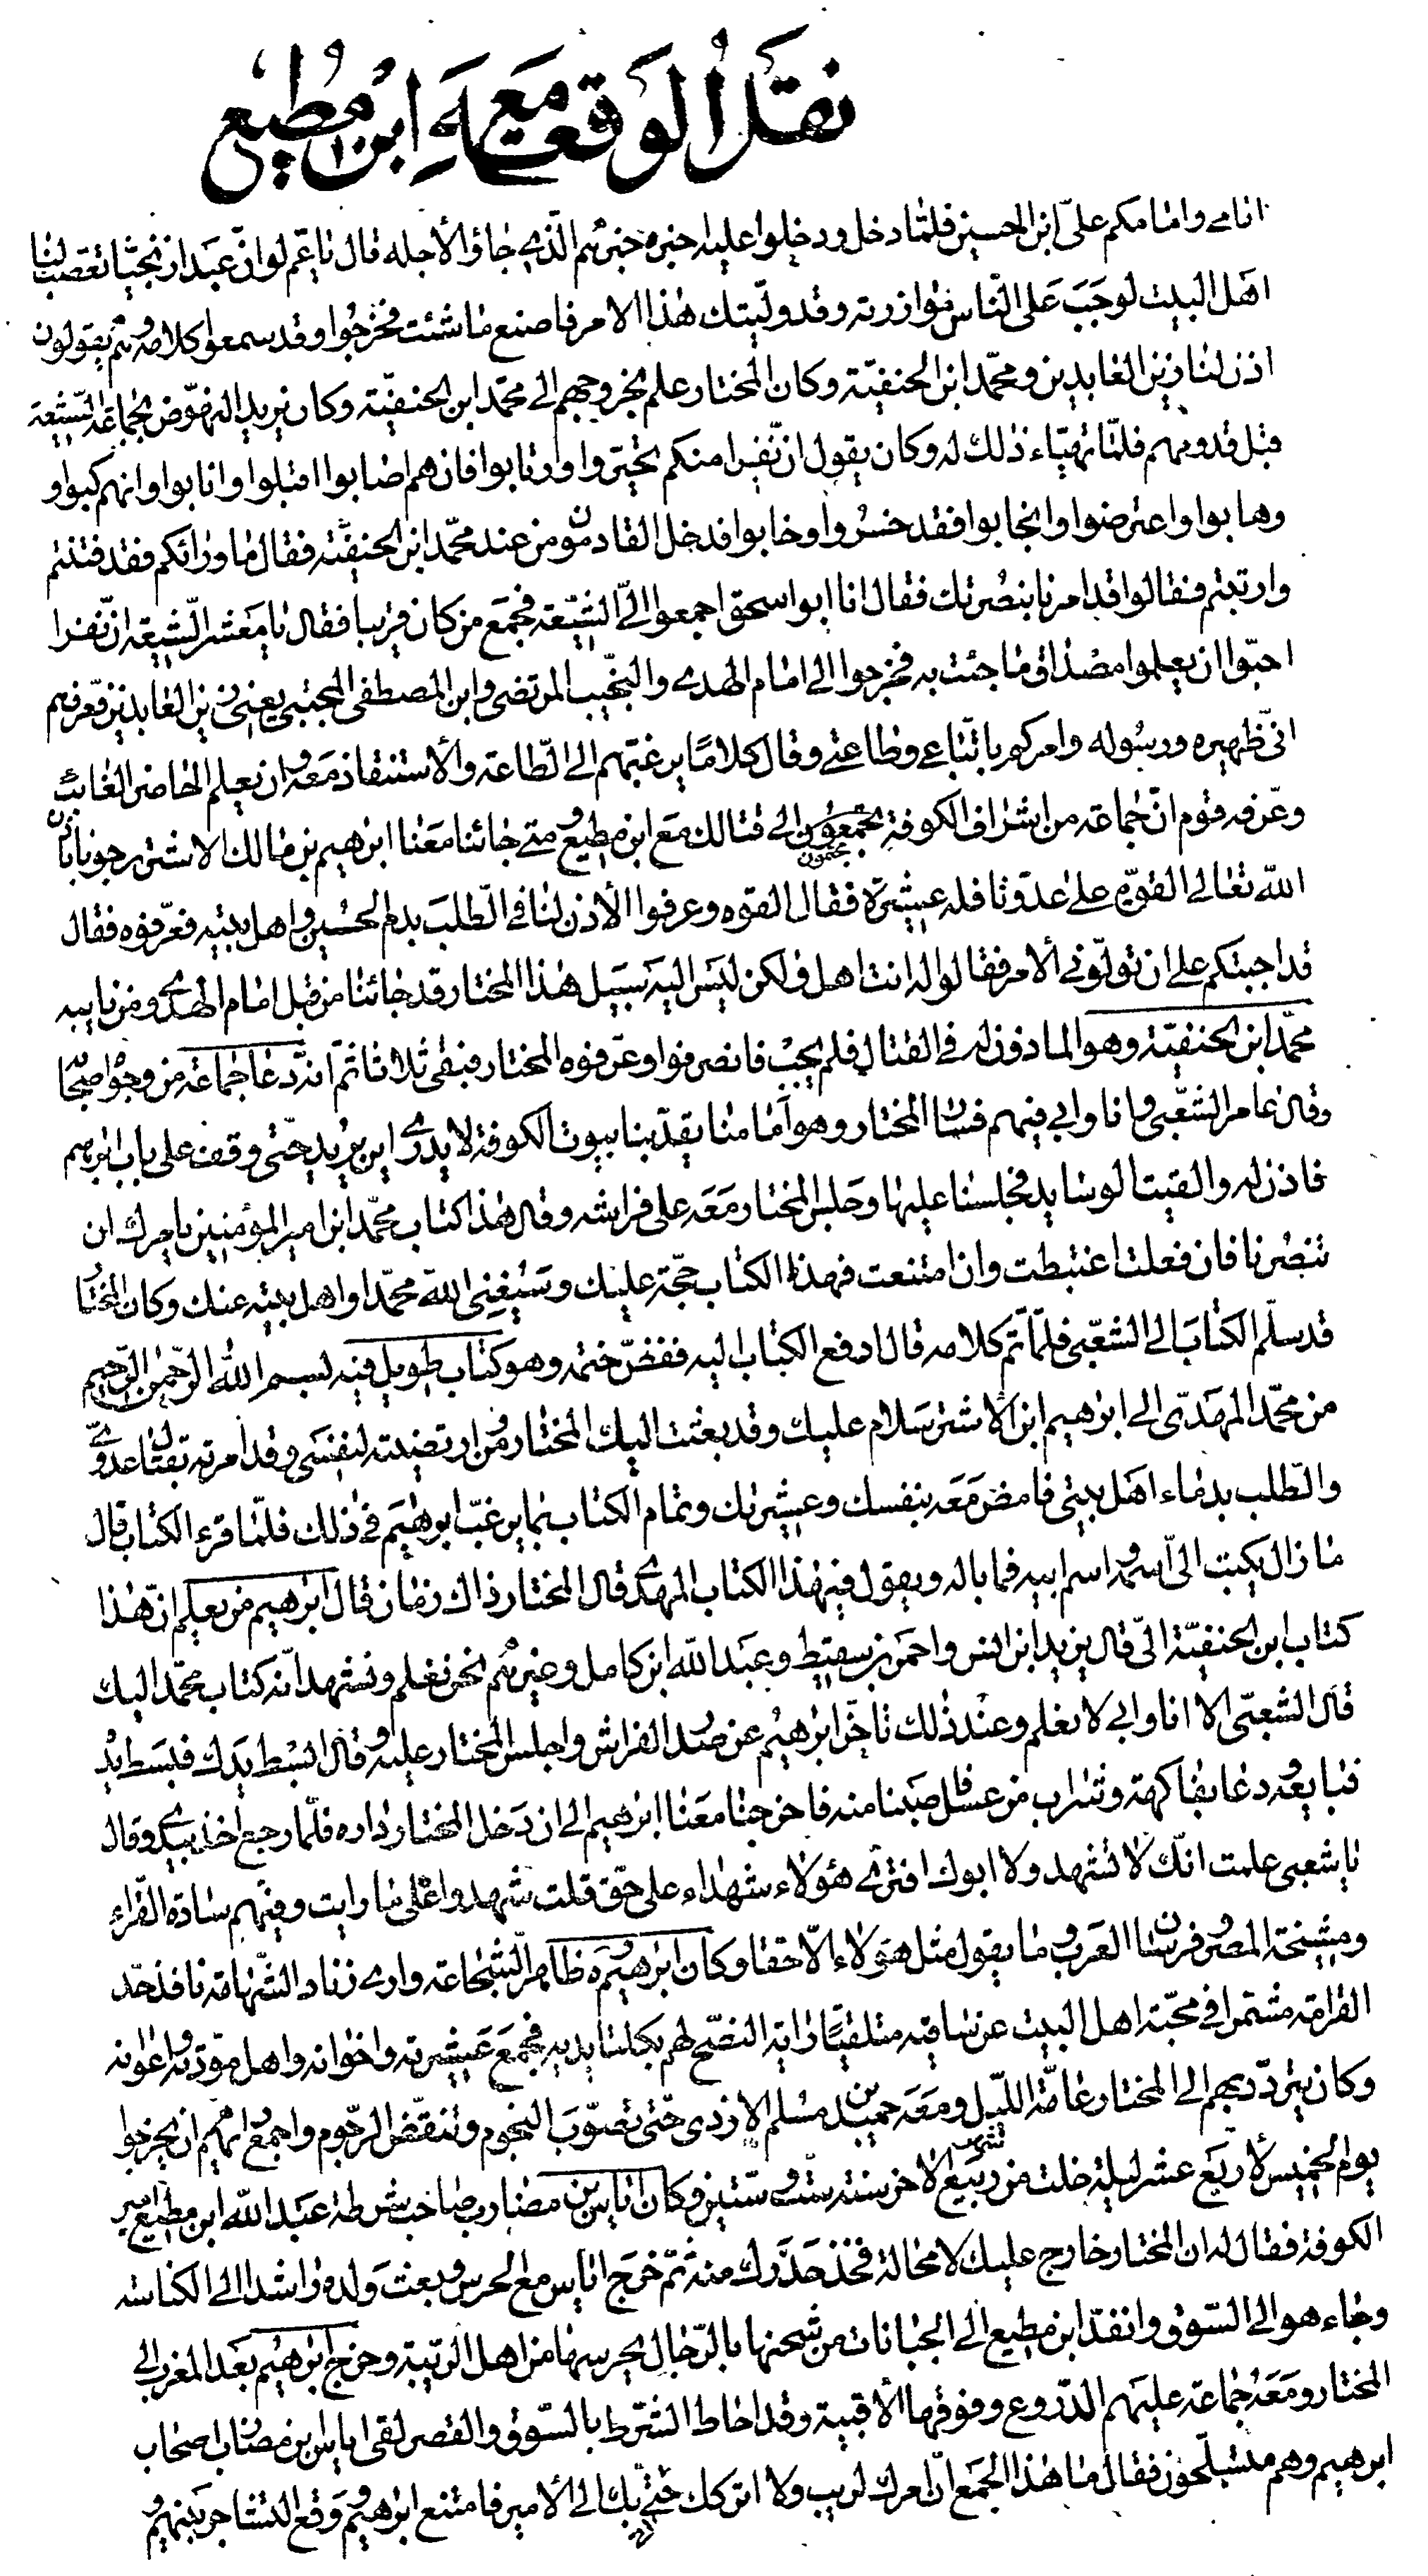 نقل الوقعة مع ابن مطيع
امامي وامامكم علي ابن الحسين فلما دخل ودخلوا عليه اخبره خبرهم الذي جاؤا لاجله قال يا عم لو ان عبدا زنجيا تعصب لنا
اهل البيت لوجب على الناس موازرته وقد وليتك هذا الامر فاصنع ما شئت فخرجوا وقد سمعوا كلامه وهم يقولون
اذن لنا زين العابدين ومحمد ابن الحنفية وكان المختار علم بخروجهم الى محمد ابن الحنفية وكان يريد النهوض بجماعة الشيعة
قبل قدومهم فلما تهياء ذلك له وكان يقول ان نفرا منكم تحيروا وارتابوا فان هم اصابوا اقبلوا وانابوا وان هم كبوا و
وهابوا واعترضوا وانجابوا فقد خسروا وخابوا فدخل القادمون من عند محمد ابن الحنفية فقال ما ورائكم فقد فتنتم
وارتبتم فقالوا قد امرنا بنصرتك فقال انا ابو اسحق اجمعوا الى الشيعة فجمع من كان قريبا فقال يا معشر الشيعة ان نفرا
احبوا ان يعلموا مصداق ما جئت به فخرجوا الى امام الهدى والنجيب المرتضى وابن المصطفى المجتبى يعني زين العابدين فعرفهم
اني ظهيره ورسوله وامركم باتباعي وطاعتي وقال كلاما يرغبهم الى الطاعة والاستنقاذ معه وان يعلم الحاضر الغائب
وعرفه قوم ان جماعة من اشراف الكوفة مجتمعون الى قتالك مع ابن مطيع ومتى جائنا معنا ابرهيم بن مالك الاشتر رجونا باذن
الله تعالى القوة على عدونا فله عشيرة فقال القوه وعرفوا الاذن لنا في الطلب بدم الحسين واهل بيته فعرفوه فقال
قد اجبتكم على ان تولوني الامر فقالوا له انت اهل ولكن ليس اليه سبيل هذا المختار قد جائنا من قبل امام الهدى ومن نايبه
محمد ابن الحنفية وهو الماذون له في القتال فلم يجب فانصرفوا وعرفوه المختار فبقى ثلاثا ثم انه دعا جماعة من وجوه اصحابه
وقال عامر الشعبي وانا وابي فيهم فسار المختار وهو امامنا يقد بنا بيوت الكوفة لا يدري اين يريد حتى وقف على باب ابرهيم
فاذن له والقيت الوسايد فجلسنا عليها وجلس المختار معه على فراشه وقال هذا كتاب محمد ابن امير المؤمنين يامرك ان
تنصرنا فان فعلت اغتبطت وان امتنعت فهذا الكتاب حجة عليك وسيغني الله محمدا واهل بيته عنك وكان المختار
قد سلم الكتاب الى الشعبي فلما تم كلامه قال ادفع الكتاب اليه ففض ختمه وهو كتاب طويل فيه بسم الله الرحمن الرحيم
من محمد المهدي الى ابرهيم ابن الاشتر سلام عليك وقد بعثت اليك المختار ومن ارتضيته لنفسي وقد امرته بقتال عدوي
والطلب بدماء اهل بيتي فامض معه بنفسك وعشيرتك وتمام الكتاب بما يرغب ابرهيم في ذلك فلما قرء الكتاب قال
ما زال يكتب الى اسمه واسم ابيه فما باله ويقول فيه هذا الكتاب المهدي قال المختار ذاك زمان قال ابرهيم من يعلم ان هذا
كتاب ابن الحنفية الى قال يزيد ابن انس واحمر بن سقيط وعبد الله ابن كامل وغيرهم نحن نعلم ونشهد انه كتاب محمد اليك
قال الشعبي الا انا وابي لا نعلم وعند ذلك تاخر ابرهيم عن صدر الفراش واجلس المختار عليه وقال ابسط يدك فبسط يده
فبايعه ودعا بفاكهة وشراب من عسل فاصبنا منه فاخرجنا معنا ابرهيم الى ان دخل المختار داره فلما رجع اخذ بيدي وقال
يا شعبي علمت انك لا تشهد ولا ابوك افترى هؤلاء شهداء على حق قلت شهدوا على ما رايت وفيهم سادة القراء
ومشيخة المصر وفرسان العرب وما يقول مثل هؤلاء الا حقا وكان ابرهيم ره ظاهر الشجاعة واري زناد الشهامة نافذ حد
القرامة مشتمرا في محبة اهل البيت عن ساقيه متلقيا راية النصح لهم بكلتا يديه فجمع عشيرته واخوانه واهل مودته واعوانه
وكان يتردد بهم الى المختار عامة الليل ومعه حميد بن مسلم الازدي حتى تصوب النجوم وتنقض الرجوم واجمع رايهم ان يخرجوا
يوم الخميس لاربع عشر ليلة خلت من شهر ربيع الاخر سنة ست وستين وكان اياس بن مضارب صاحب شرطة عبد الله ابن مطيع امير
الكوفة فقال له ان المختار خارج عليك لا محالة فخذ حذرك منه ثم خرج اياس مع الحرس وبعث ولده راشدا الى الكناسة
وجاء هو الى السوق وانفذ ابن مطيع الى الجبانات من شحنها بالرجال يحرسها من اهل الريبة وخرج ابرهيم بعد المغرب الى
المختار ومعه جماعة عليهم الدروع وفوقها الاقبية وقد احاط الشرط بالسوق والقصر لقى اياس بن مضارب اصحاب
ابرهيم وهم متسلحون فقال ما هذا الجمع ان امرك لمريب ولا اتركك حتى اتي بك الى الامير فامتنع ابرهيم ووقع التشاجر بينهم و